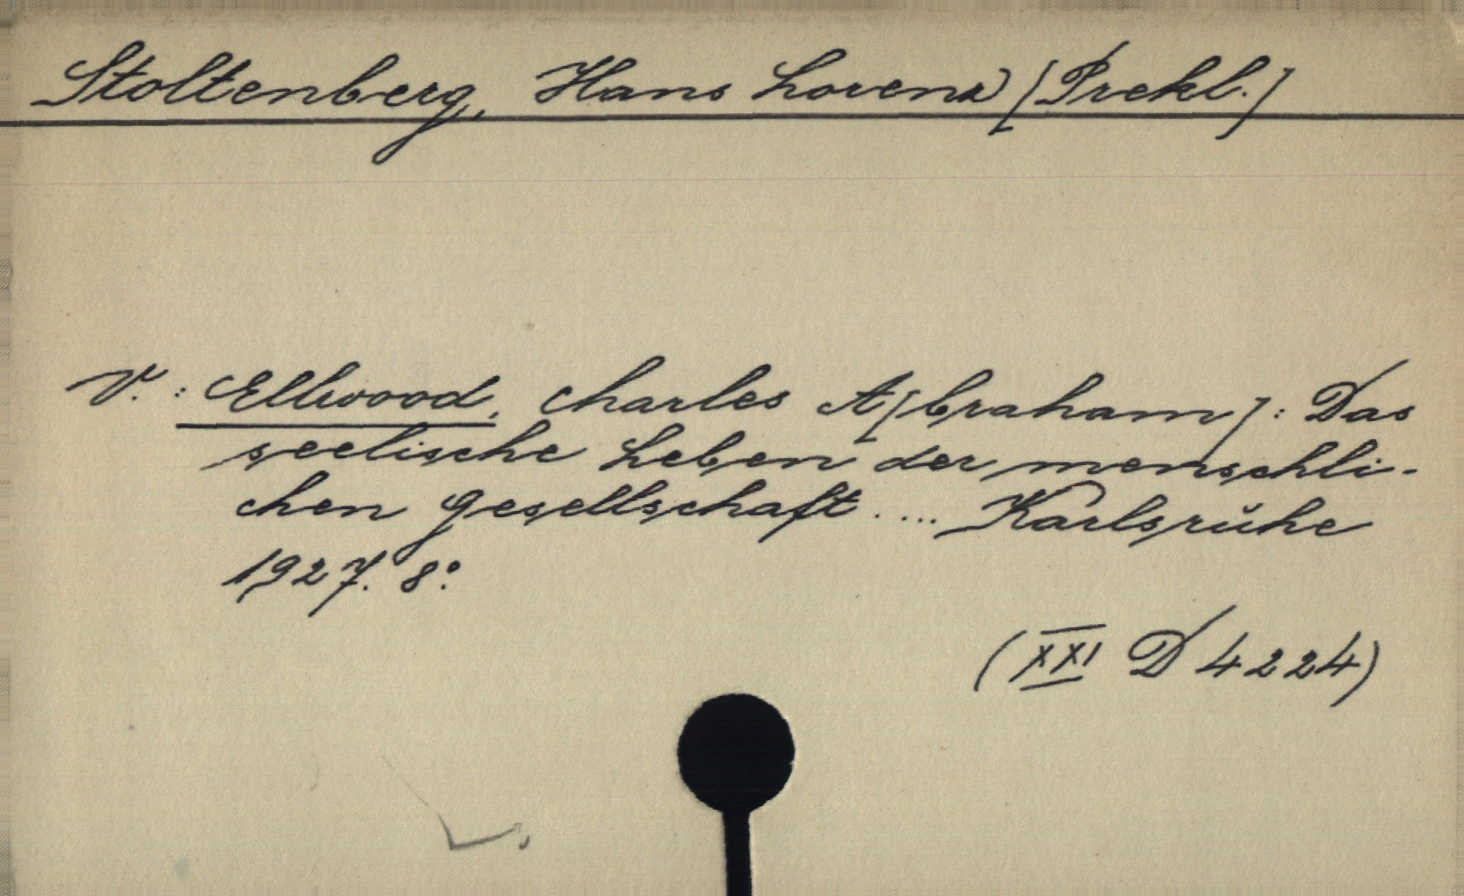 Stoltenberg, Hans Lorenz [Prekl.]
V.: Ellwood, Charles A[braham]: Das
seelische Leben der menschli-
chen Gesellschaft .... Karlsruhe
1927. 8°.
(XXI D 4224)